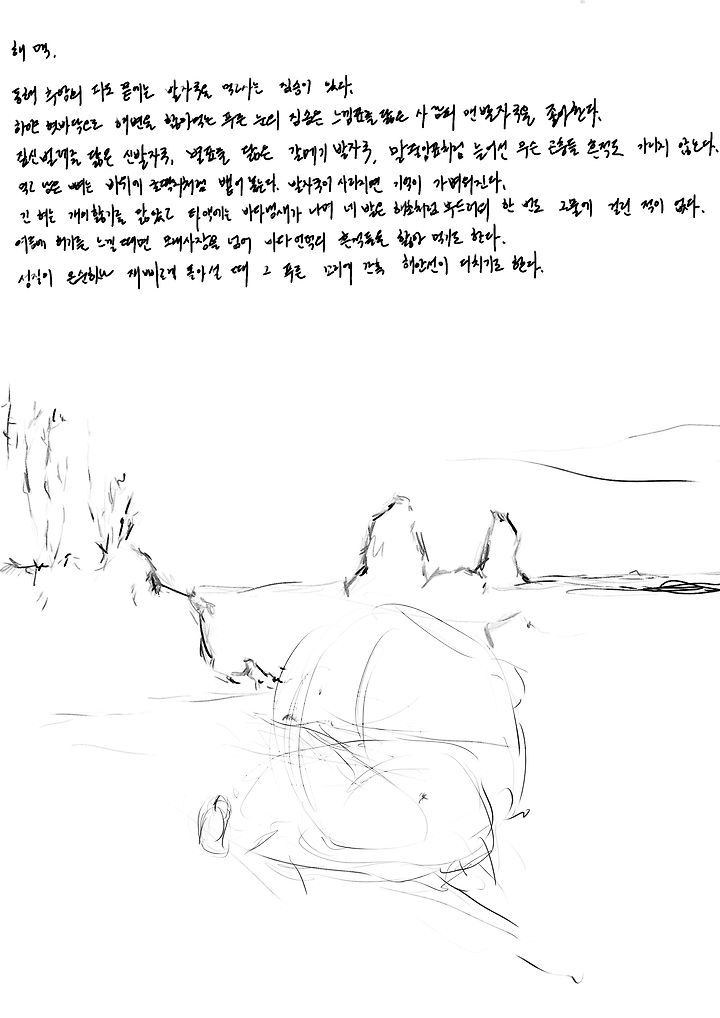 해맥.
동해 최남의 파도 끝에는 발자국을 먹는 짐승이 있다.
하얀 혓바닥으로 해변을 핥아먹는 푸른 눈의 짐승은 느낌표를 닮은 사람의 맨발자국을 좋아한다.
짚신벌레를 닮은 신발자국, 별표를 닮은 갈매기 발자국, 말줄임표처럼 늘어선 곤충들 흔적도 가리지 않는다.
먹고 남은 뼈는 바위에 뱉어 놓는다. 발자국이 사라지면 기억이 가벼워진다.
긴 혀는 개미핥기를 닮았고 타액에는 바다냄새가 나며 네 발은 해초처럼 부드러워 한 번도 그물에 걸린 적이 없다.
여름에 허기를 느낄 때면 모래사장을 넘어 바다 언덕의 흔적들을 핥아 먹기도 한다.
성질이 온순하나 재빠르게 돌아설 때 그 푸른 꼬리에 간혹 해안선이 다치기도 한다.